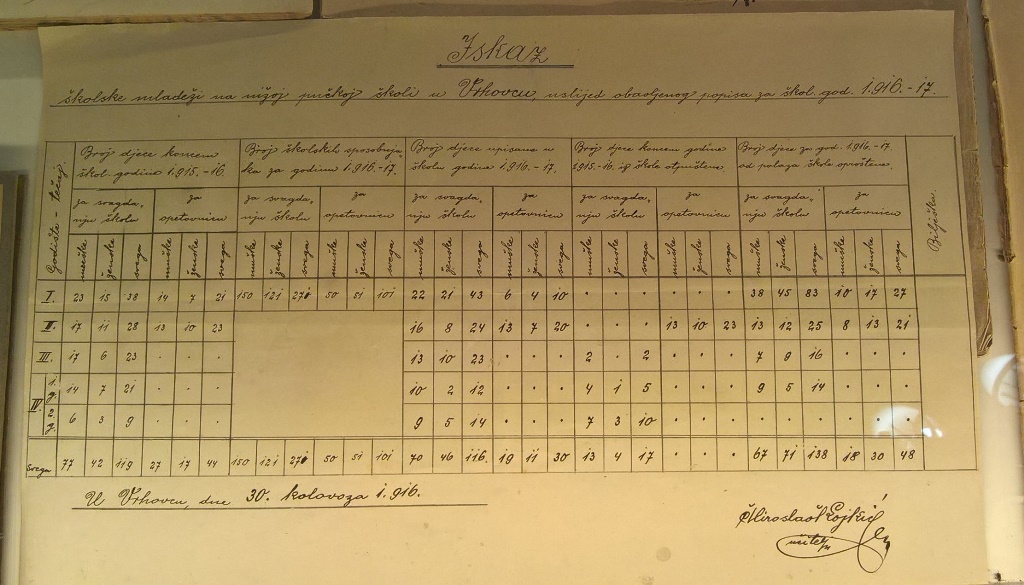 Iskaz
školske mladeži na nižoj pučkoj školi u Vrhovcu, uslijed obavljenog popisa za škol. god. 1.916.-17.
Godište - tečaj
Broj djece koncem škol. godine 1.915.-16.
Broj školskih sposobnjaka za godinu 1.916.-17.
Broj djece upisane u školu godine 1.916.-17.
Broj djece koncem godine 1915.-16. iz škole otpuštene
Broj djece za god. 1.916.-17. od polaza škole oproštene
Bilješka.
za svagdanju školu za opetovnicu za svagdanju školu za opetovnicu za svagdanju školu za opetovnicu za svagdanju školu za opetovnicu za svagdanju školu za opetovnicu
muške ženske svega muške ženske svega muške ženske svega muške ženske svega muške ženske svega muške ženske svega muške ženske svega muške ženske svega muške ženske svega muške ženske svega
I. 23 15 38 14 7 21 150 121 271 50 51 101 22 21 43 6 4 10 · · · · · · 38 45 83 10 17 27
II. 17 11 28 13 10 23 16 8 24 13 7 20 · · · 13 10 23 13 12 25 8 13 21
III. 17 6 23 · · · 13 10 23 · · · 2 · 2 · · · 7 9 16 · · ·
IV. 1. g. 14 7 21 · · · 10 2 12 · · · 4 1 5 · · · 9 5 14 · · ·
2. g. 6 3 9 · · · 9 5 14 · · · 7 3 10 · · · · · · · · ·
svega 77 42 119 27 17 44 150 121 271 50 51 101 70 46 116. 19 11 30 13 4 17 · · · 67 71 138 18 30 48
U Vrhovcu, dne 30. kolovoza 1.916.
Miroslav
učitelj